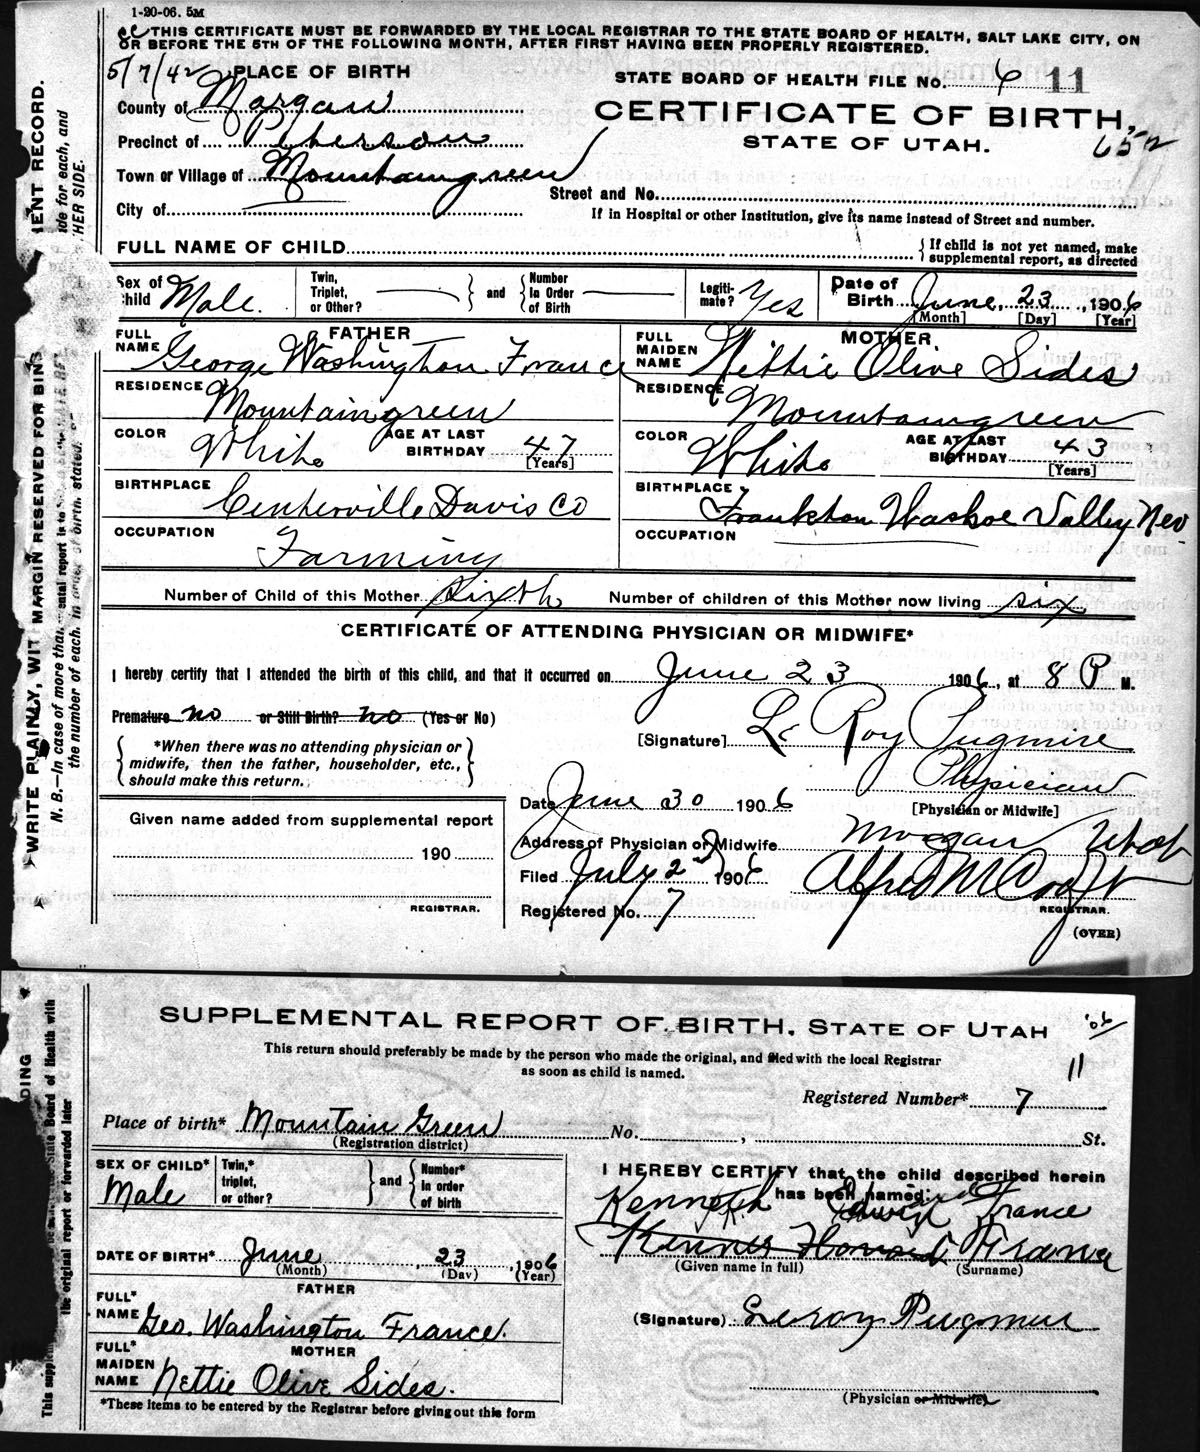 1-20-06. 5M
THIS CERTIFICATE MUST BE FORWARDED BY THE LOCAL REGISTRAR TO THE STATE BOARD OF HEALTH, SALT LAKE CITY, ON
OR BEFORE THE 5TH OF THE FOLLOWING MONTH, AFTER FIRST HAVING BEEN PROPERLY REGISTERED.
5/7/42 PLACE OF BIRTH
STATE BOARD OF HEALTH FILE No. 6 11
County of Morgan
CERTIFICATE OF BIRTH,
652
Precinct of Peterson
STATE OF UTAH.
Town or Village of Mountaingreen
Street and No.
City of
If in Hospital or other Institution, give its name instead of Street and number.
FULL NAME OF CHILD
If child is not yet named, make
supplemental report, as directed
Sex of Child Male.
Twin, Triplet, or Other?
and
Number In Order of Birth
Legiti-mate? Yes
Date of Birth June, 23, 1906
[Month] [Day] [Year]
FATHER
FULL NAME George Washington France
MOTHER
FULL MAIDEN NAME Nettie Olive Sides
RESIDENCE Mountaingreen
RESIDENCE Mountaingreen
COLOR White
AGE AT LAST BIRTHDAY 47
[Years]
COLOR White
AGE AT LAST BIRTHDAY 43
[Years]
BIRTHPLACE Centerville Davis Co
BIRTHPLACE Frankton Washoe Valley Nev.
OCCUPATION Farming
OCCUPATION
Number of Child of this Mother sixth Number of children of this Mother now living six
CERTIFICATE OF ATTENDING PHYSICIAN OR MIDWIFE*
I hereby certify that I attended the birth of this child, and that it occurred on June 23 1906, at 8 P M.
Premature no or Still Birth? no (Yes or No)
[Signature] Le Roy Pugmire
*When there was no attending physician or
midwife, then the father, householder, etc.,
should make this return.
Physician
[Physician or Midwife]
Date June 30 1906
Given name added from supplemental report
190
REGISTRAR.
Address of Physician or Midwife Morgan Utah
Filed July 2nd 1906
Registered No. 7
REGISTRAR.
(OVER)
WRITE PLAINLY, WITH MARGIN RESERVED FOR BIN
IENT RECORD.
N. B.—In case of more than
the number of each, in order of birth, stated.
ide for each, and
HER SIDE.
SUPPLEMENTAL REPORT OF BIRTH, STATE OF UTAH
'06
This return should preferably be made by the person who made the original, and filed with the local Registrar
as soon as child is named.
11
Registered Number* 7
Place of birth* Mountain Green No. , St.
(Registration district)
SEX OF CHILD* Male
Twin,* triplet, or other?
and
Number* In order of birth
I HEREBY CERTIFY that the child described herein
has been named:
Kenneth Edwin France
France
(Given name in full) (Surname)
DATE OF BIRTH* June, 23, 1906
(Month) (Day) (Year)
FATHER
FULL* NAME Geo. Washington France.
(Signature) Leroy Pugmire
MOTHER
FULL* MAIDEN NAME Nettie Olive Sides.
(Physician or Midwife)
*These items to be entered by the Registrar before giving out this form
DING
State Board of Health with
the original report or forwarded later